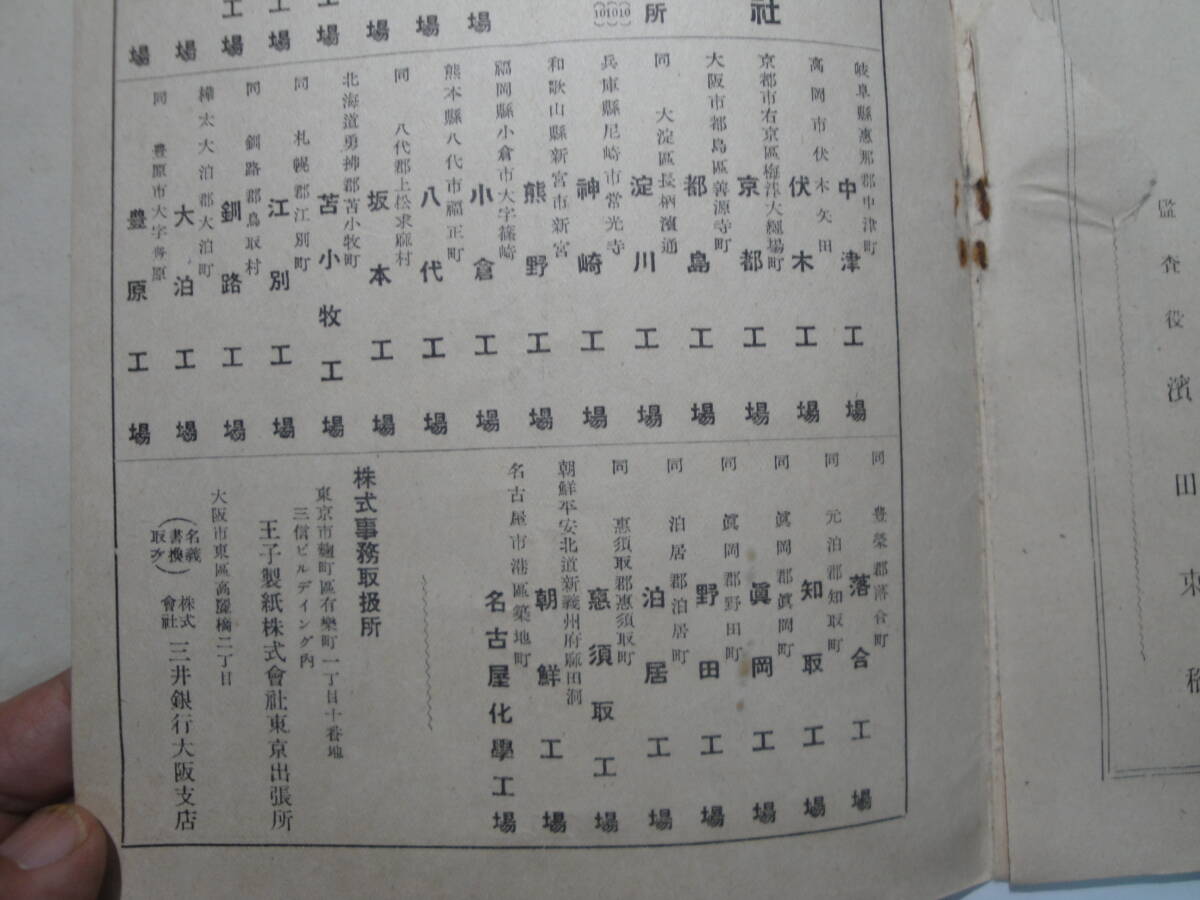 監査役 濱田東稲
社
所
工場
工場
工場
場
場
場
場
場
岐阜縣惠那郡中津町
中津工場
高岡市伏木矢田
伏木工場
京都市右京區梅津大繩場町
京都工場
大阪市都島區善源寺町
都島工場
同 大淀區長柄濱通
淀川工場
兵庫縣尼崎市常光寺
神崎工場
和歌山縣新宮市新宮
熊野工場
福岡縣小倉市大字篠崎
小倉工場
熊本縣八代市福正町
八代工場
同 八代郡上松求麻村
坂本工場
北海道勇拂郡苫小牧町
苫小牧工場
同 札幌郡江別町
江別工場
同 釧路郡鳥取村
釧路工場
樺太大泊郡大泊町
大泊工場
同 豊原市大字豊原
豊原工場
同 豊榮郡落合町
落合工場
同 元泊郡知取町
知取工場
同 眞岡郡眞岡町
眞岡工場
同 眞岡郡野田町
野田工場
同 泊居郡泊居町
泊居工場
同 惠須取郡惠須取町
惠須取工場
朝鮮平安北道新義州府麻田洞
朝鮮工場
名古屋市港區築地町
名古屋化學工場
株式事務取扱所
東京市麴町區有樂町一丁目十番地
三信ビルデイング内
王子製紙株式會社東京出張所
大阪市東區高麗橋二丁目
(名義書換取次) 株式會社 三井銀行大阪支店